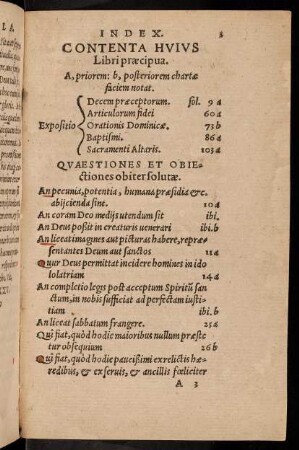 INDEX.
CONTENTA HVIVS
Libri præcipua.
A, priorem: b, posteriorem chartæ
faciem notat.
Decem præceptorum. fol. 9 a
Articulorum fidei 60 a
Expositio Orationis Dominicæ. 73 b
Baptismi. 86 a
Sacramenti Altaris. 103 a
QVAESTIONES ET OBIE-
ctiones obiter solutæ.
An pecunia, potentia, humana præsidia &c.
abijcienda sint. 10 a
An coram Deo medijs utendum sit ibi.
An Deus possit in creaturis uenerari ibi. b
An liceat imagines aut picturas habere, repræ-
sentantes Deum aut sanctos 11 a
Quur Deus permittat incidere homines in ido
lolatriam 14 a
An completio legis post acceptum Spiritũ san
ctum, in nobis sufficiat ad perfectam iusti-
tiam ibi. b
An liceat sabbatum frangere. 25 a
Quî fiat, quòd hodie maioribus nullum præste
tur obsequium 26 b
Quî fiat, quòd hodie paucissimi ex relictis hæ-
redibus, & ex seruis, & ancillis fœliciter
A 3